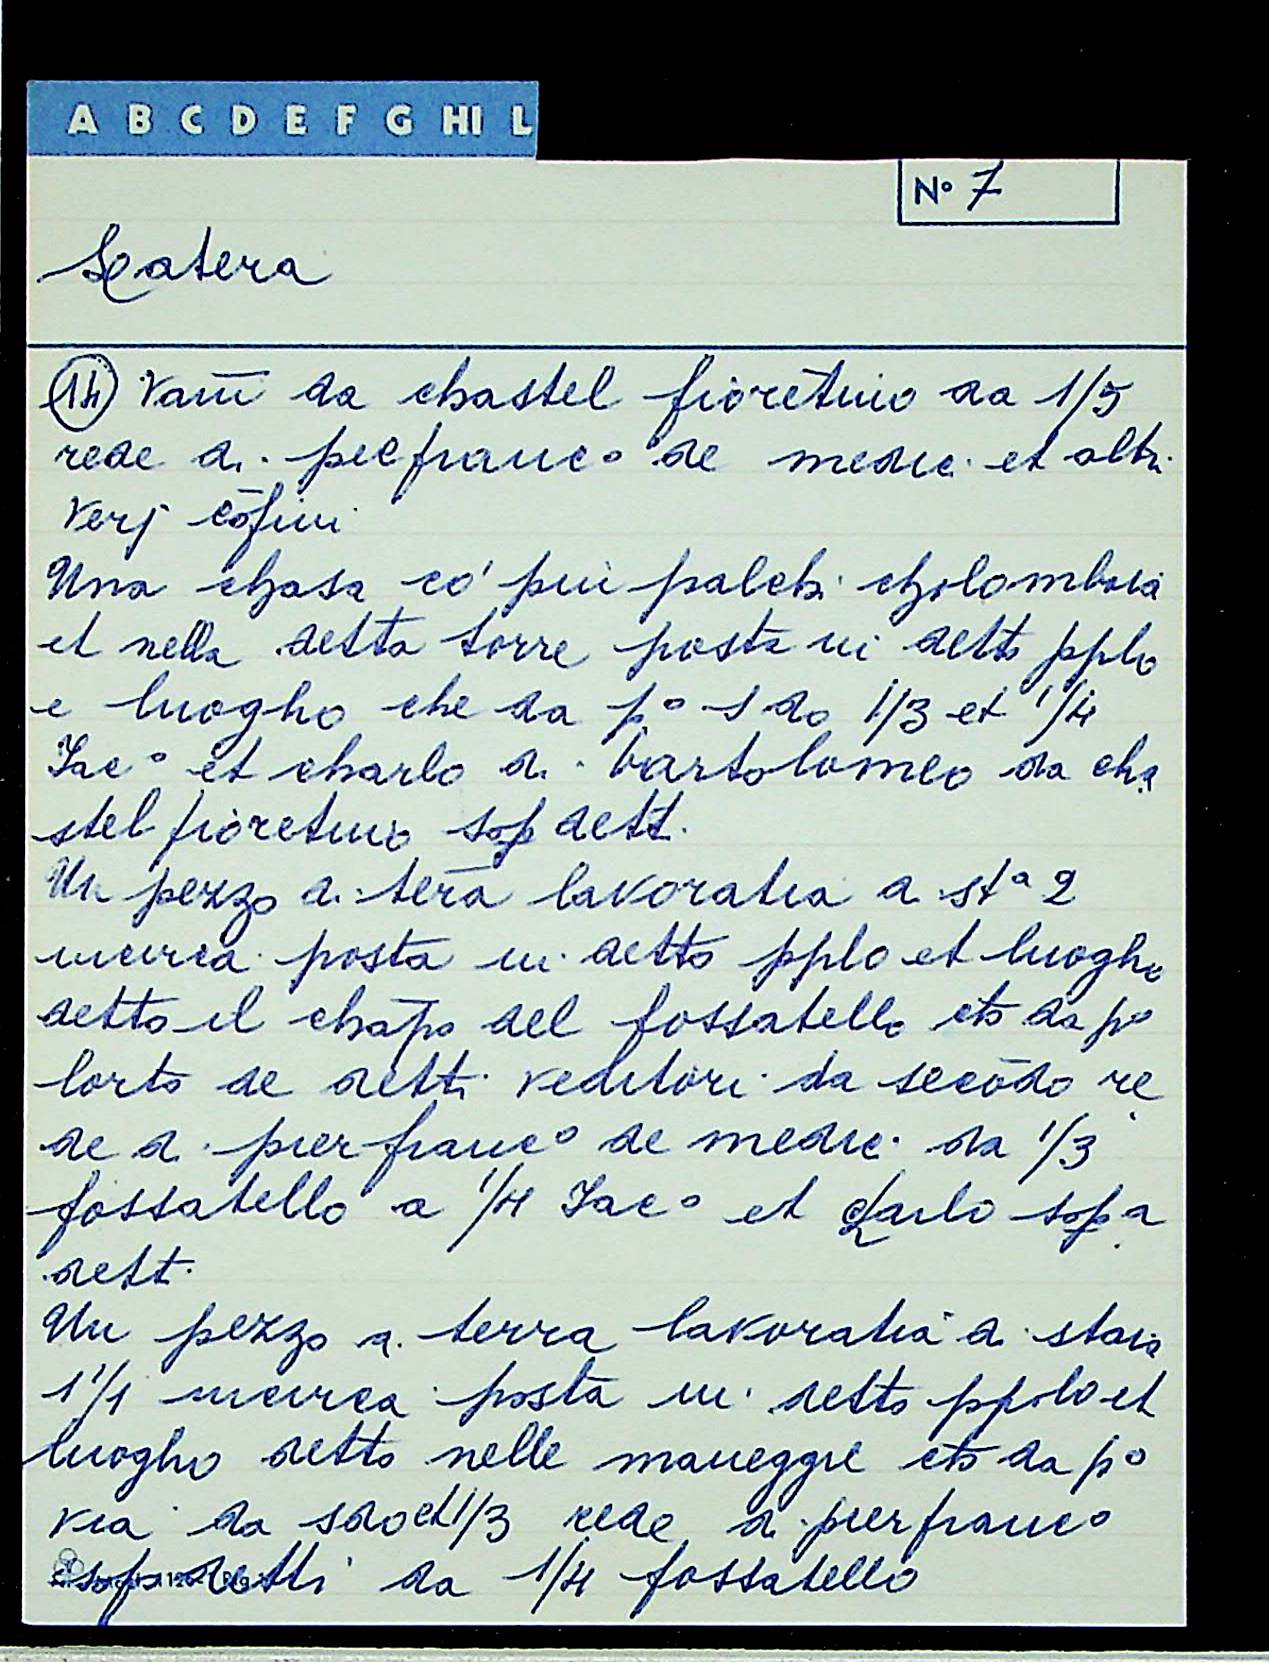 A B C D E F G HI L
N° 7
14 Vanī da chastel fiorētino da 1/5
rede d. pierfranc° de medic. et altri
verj cōfini
Una chasa co' piu palchi cholombaia
et nella detta torre posta in detto pplo
e luogho che da p° s do 1/3 et 1/4
Iac° et charlo d. bartolomeo da cha
stel fioretino sop dett.
Un pezzo d. terā lavoratia d. st.ª 2
incirca posta in detto pplo et luogho
detto il chāpo del fossatello cō da p°
lorto de detti veditori da secōdo re
de d. pierfranc° de medic. da 1/3
fossatello a 1/4 Iac° et Carlo sop a
dett.
Un pezzo d. terra lavoratia d. staia
1 1/1 incirca posta in detto ppolo et
luogho detto nelle maneggie cō da p°
via da sdo et 1/3 rede d. pierfranc°
sop detti da 1/4 fossatello